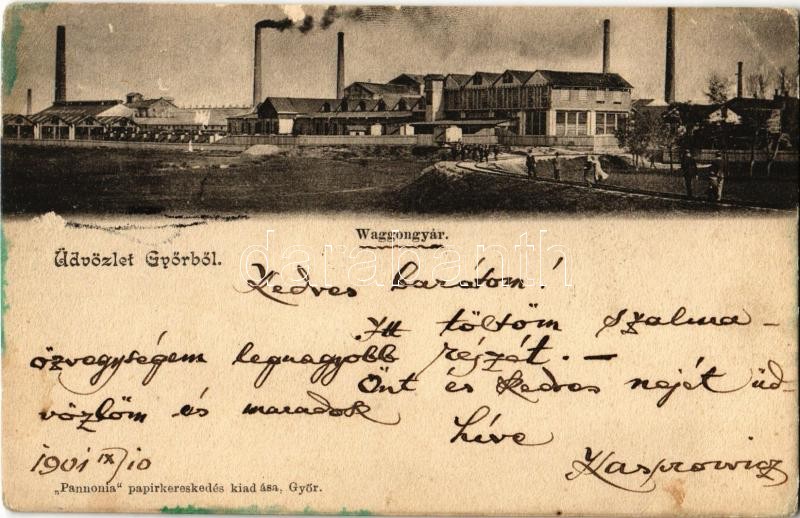 Waggongyár.
Üdvözlet Győrből.
darabanth
Kedves barátom!
Itt töltöm szalma-
özvegységem legnagyobb részét. —
Önt és kedves nejét üd-
vözlöm és maradok
híve
1901 IX/10
Kasprowicz
„Pannonia" papirkereskedés kiadása, Győr.